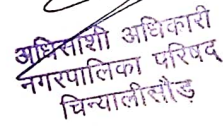 अधिशाशी अधिकारी
नगरपालिका परिषद्
चिन्यालीसौड़